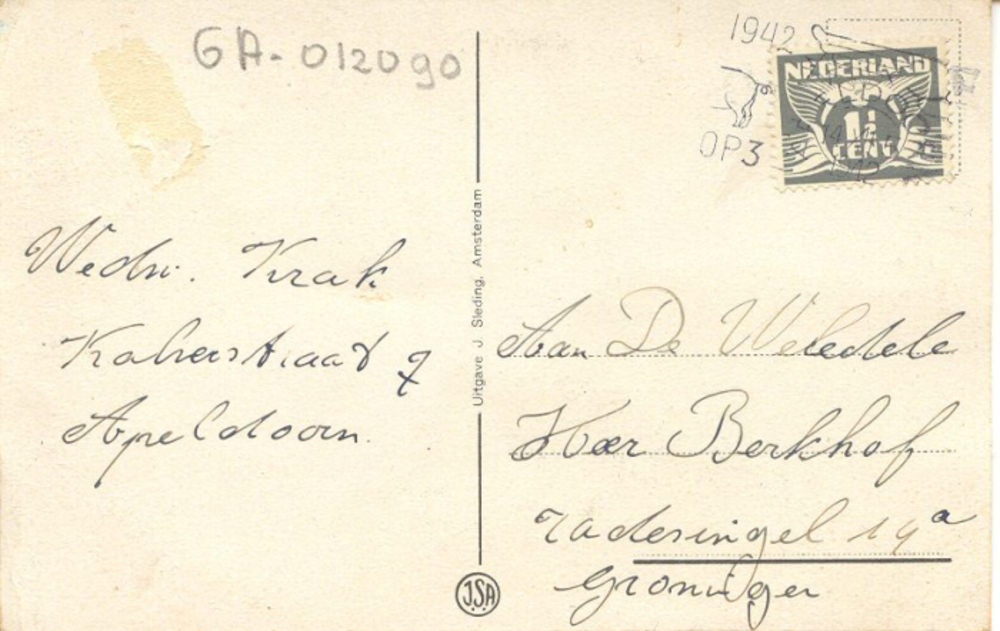 GA-012090
1942
OP 3
NEDERLAND
1½
CENT
Wedw. Krak
Kalverstraat 9
Apeldoorn.
Uitgave J. Sleding, Amsterdam
Aan De Weledele
Heer Berkhof
Radesingel 19a
Groningen
J.S.A.